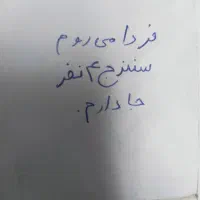 فردا می روم
سنندج ۴ نفر
جا دارم.